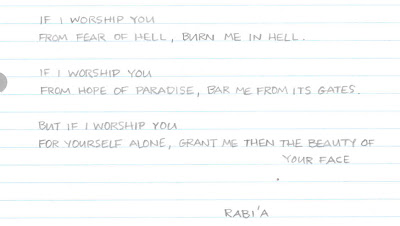 IF I WORSHIP YOU
FROM FEAR OF HELL, BURN ME IN HELL.
IF I WORSHIP YOU
FROM HOPE OF PARADISE, BAR ME FROM ITS GATES.
BUT IF I WORSHIP YOU
FOR YOURSELF ALONE, GRANT ME THEN THE BEAUTY OF
YOUR FACE
RABI'A